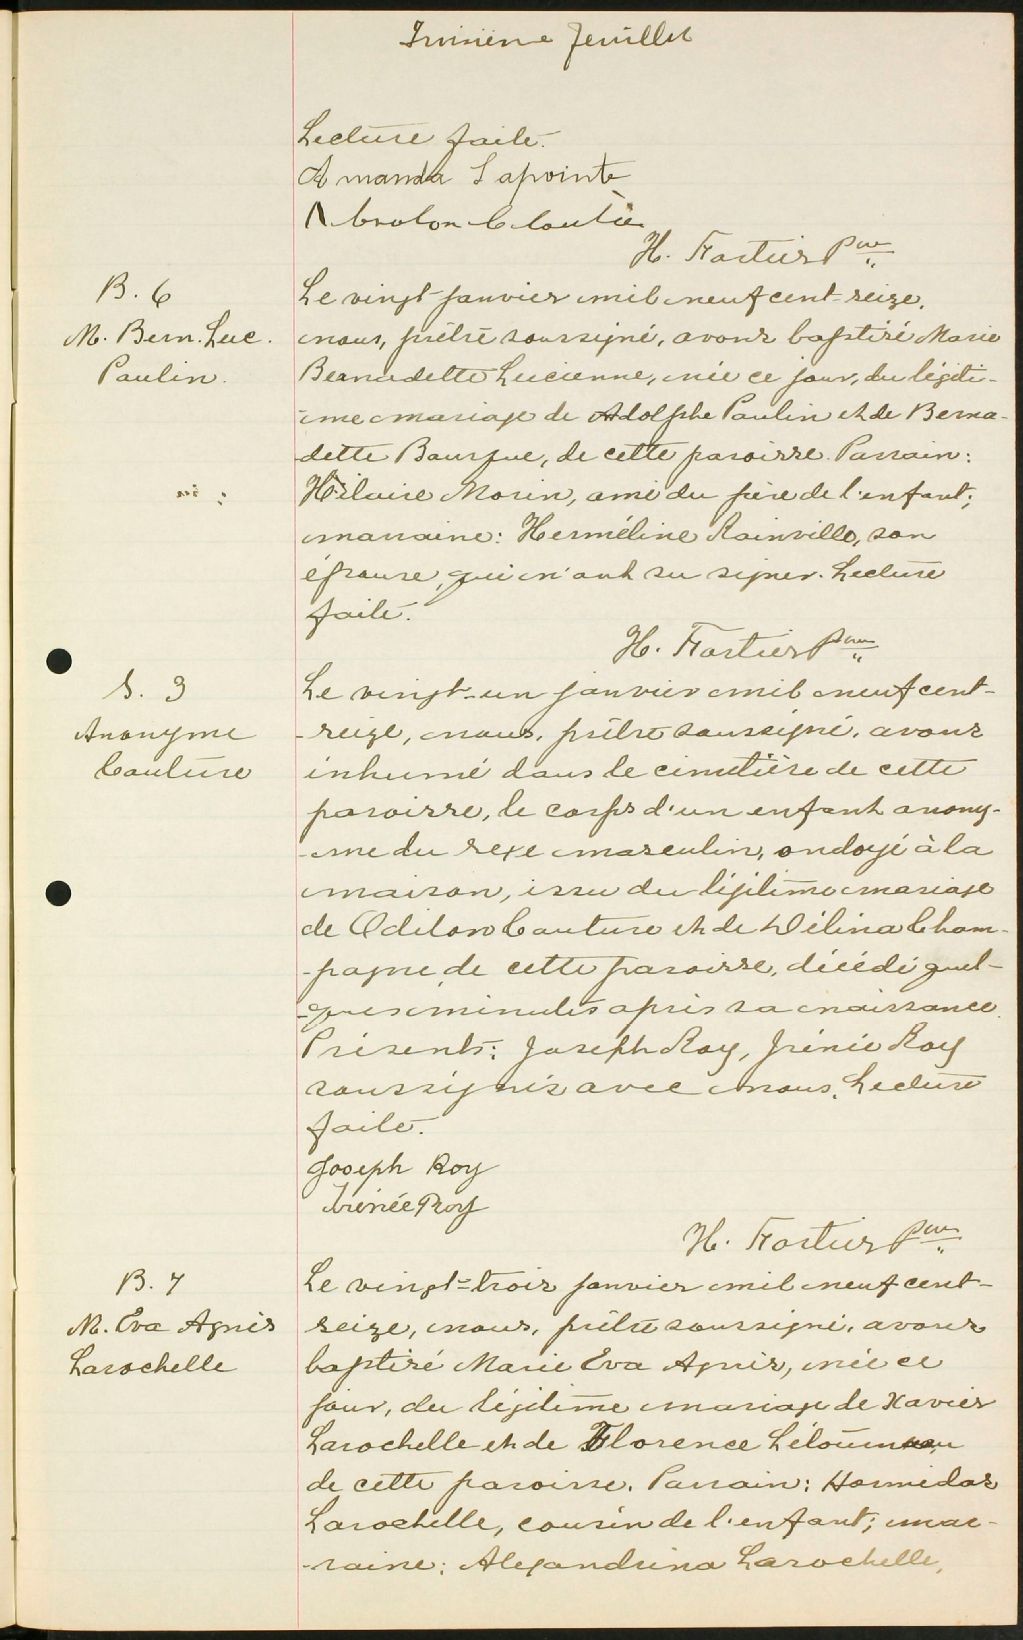 Troisième feuillet
Lecture faite.
Amanda Lapointe
H. Fortier Ptre
B. 6
M. Bern. Luc.
Paulin.
Le vingt janvier mil neuf cent-seize,
nous, prêtre soussigné, avons baptisé Marie
Bernadette Lucienne, née ce jour, du légiti-
-me mariage de Adolphe Paulin et de Berna-
-dette Bourque, de cette paroisse. Parrain:
Hilaire Morin, ami du père de l'enfant;
marraine: Herméline Rainville, son
épouse, qui n'ont su signer. Lecture
faite.
H. Fortier Ptre
S. 3
Anonyme
Couture
Le vingt-un janvier mil neuf cent-
-seize, nous, prêtre soussigné, avons
inhumé dans le cimetière de cette
paroisse, le corps d'un enfant anony-
-me du sexe masculin, ondoyé à la
maison, issu du légitime mariage
de Odilon Couture et de Délina Cham-
-pagne, de cette paroisse, décédé quel-
-ques minutes après sa naissance.
Présents: Joseph Roy, Irénée Roy
soussignés avec nous. Lecture
faite.
Joseph Roy
Irenée Roy
H. Fortier Ptre
B. 7
M. Eva Agnès
Larochelle
Le vingt-trois janvier mil neuf cent-
seize, nous, prêtre soussigné, avons
baptisé Marie Eva Agnès, née ce
jour, du légitime mariage de Xavier
Larochelle et de Florence Létourneau
de cette paroisse. Parrain: Hormidas
Larochelle, cousin de l'enfant; mar-
-raine: Alexandrina Larochelle,